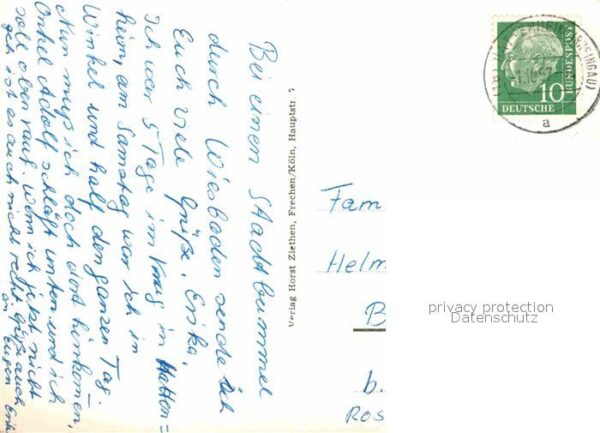 Bei einen Stadtbummel
durch Wiesbaden sende ich
Euch viele Grüße. Erika.
Ich war 5 Tage im Krug in Hatten=
heim, am Samstag war ich in
Winkel und half den ganzen Tag.
Nun muß ich doch dort hinkommen,
Onkel Adolf schläft unten und ich
soll oben rauf. Wenn ich jetzt nicht
geh ist es auch nicht recht. Grüße auch
an Eugen Erika
Verlag Horst Ziethen, Frechen/Köln, Hauptstr.
10
DEUTSCHE
BUNDESPOST
(RHEINGAU)
a
Fam
Helm
B
b.
Ros
privacy protection
Datenschutz